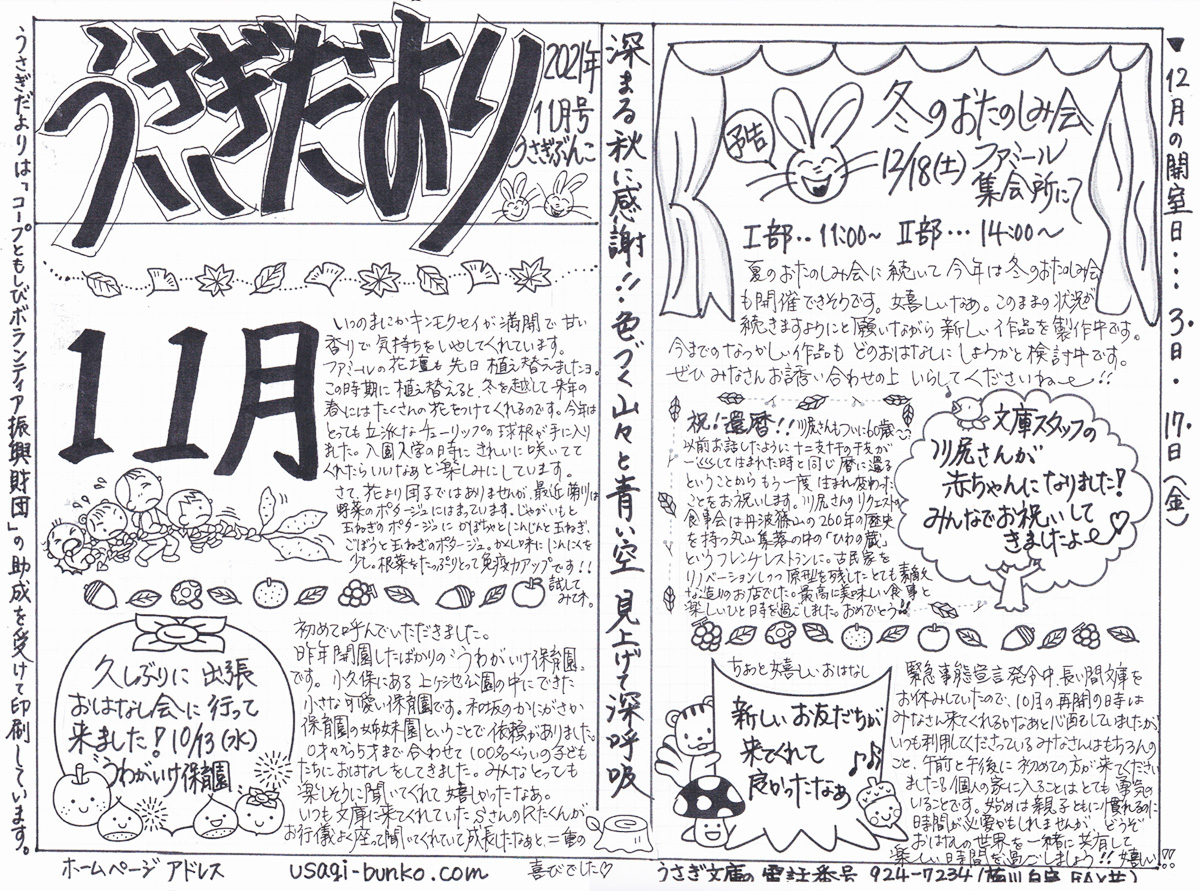 うさぎだより
2021年
11月号
うさぎぶんこ
11月
いつのまにかキンモクセイが満開で甘い
香りで気持ちをいやしてくれています。
ファミールの花壇も先日植え替えましたヨ。
この時期に植え替えると、冬を越して来年の
春にはたくさんの花をつけてくれるのです。今年は
とっても立派なチューリップの球根が手に入り
ました。入園入学の時にきれいに咲いてて
くれたらいいなぁと楽しみにしています。
さて、花より団子ではありませんが、最近菊川は
野菜のポタージュにはまっています。じゃがいもと
玉ねぎのポタージュにかぼちゃとにんじんと玉ねぎ、
ごぼうと玉ねぎのポタージュ。かくし味ににんにくを
少し。根菜をたっぷりとって免疫力アップです!!
試して
みてネ。
久しぶりに出張
おはなし会に行って
来ました!10/13(水)
うわがいけ保育園
初めて呼んでいただきました。
昨年開園したばかりのうわがいけ保育園
です。小久保にある上ヶ池公園の中にできた
小さな可愛い保育園です。和坂のかにがさか
保育園の姉妹園ということで依頼がありました。
0才から5才まで合わせて100名ぐらいの子ども
たちにおはなしをしてきました。みんなとっても
楽しそうに聞いてくれて嬉しかったなぁ。
いつも文庫に来てくれていたSさんのKたくんが
お行儀よく座って聞いてくれていて成長したなぁと、二重の
喜びでした♡
深まる秋に感謝!!色づく山々と青い空 見上げて深呼吸
予告
冬のおたのしみ会
12/18(土)ファミール
集会所にて
Ⅰ部‥11:00~ Ⅱ部…14:00~
夏のおたのしみ会に続いて今年は冬のおたのしみ会
も開催できそうです。嬉しいなぁ。このままの状況が
続きますようにと願いながら新しい作品を製作中です。
今までのなつかしい作品もどのおはなしにしようかと検討中です。
ぜひみなさんお誘い合わせの上いらしてくださいね~!!
祝!還暦!!川尻さんもついに60歳
以前お話したように十二支十干の干支が
一巡して生まれた時と同じ暦に還る
ということからもう一度生まれ変わった
ことをお祝いします。川尻さんのリクエストの
食事会は丹波篠山の260年の歴史
を持つ丸山集落の中の「ひわの蔵」
というフレンチレストランに。古民家を
リノベーションしつつ原型を残したとても素敵
な造りのお店でした。最高に美味しい食事と
楽しいひと時を過ごしました。おめでとう!!
文庫スタッフの
川尻さんが
赤ちゃんになりました!
みんなでお祝いして
きましたよ~♡
ちょっと嬉しいおはなし
新しいお友だちが
来てくれて
良かったなぁ
緊急事態宣言発令中、長い間文庫を
お休みしていたので、10月の再開の時は
みなさん来てくれるかなぁと心配していましたが、
いつも利用してくださっているみなさんはもちろんの
こと、午前と午後に初めての方が来てください
ました!個人の家に入ることはとても勇気の
いることです。始めは親子ともに慣れるのに
時間が必要かもしれませんが、どうぞ
おはなしの世界を一緒に共有して
楽しい時間を過ごしましょう!!嬉しい!!
▼12月の開室日…3.日.17.日(金)
うさぎだよりは「コープともしびボランティア振興財団」の助成を受けて印刷しています。
ホームページアドレス usagi-bunko.com
うさぎ文庫の電話番号 924-7234